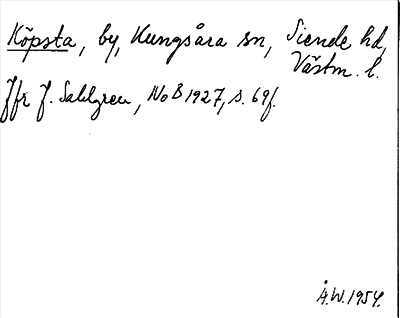 Köpsta, by, Kungsåra sn, Siende hd,
Västm. l.
Jfr J. Sahlgren, NoB 1927, s. 69f.
Å.W. 1954.